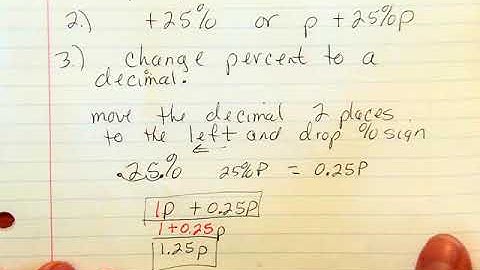 2.) +25% or p + 25%p
3.) change percent to a
decimal.
move the decimal 2 places
to the left and drop % sign
←
.25.% 25%P = 0.25P
1p + 0.25p
1+0.25p
1.25p